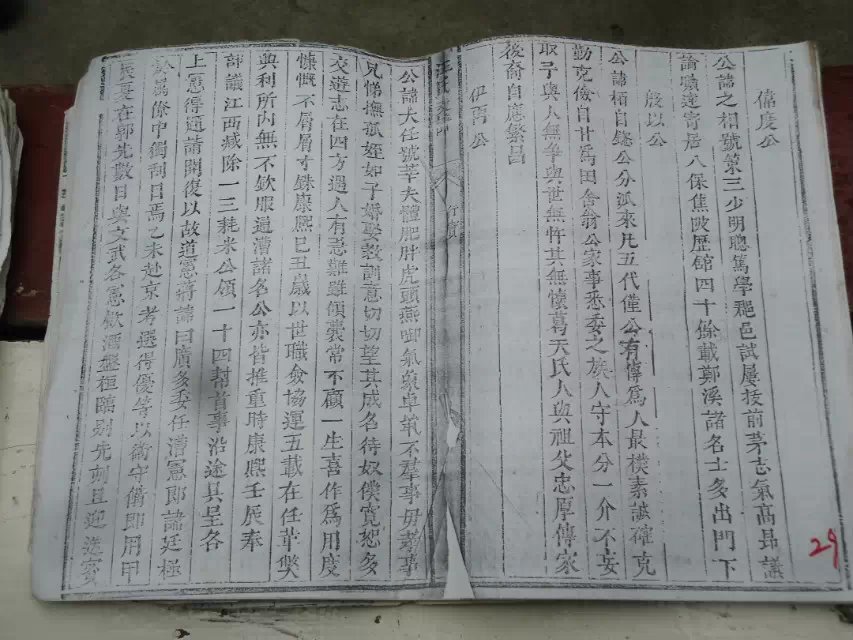 儒度公
公諱之相號第三少明聰篤學邑試屢拔前茅志氣高昂議
論暢達寄居八保焦陂歷館四十餘載鄭溪諸名士多出門下
殷以公
公諱栢自鎡公分派來凡五代僅公有傳爲人最樸素誠確克
勤克儉自甘爲田舍翁公家事悉委之族人守本分一介不妄
取予與人無爭與世無忤其無懷葛天氏人與祖父忠厚傳家
後裔自應繁昌
伊再公
公諱大任號莘夫體肥胖虎頭燕頷氣象卓犖不羣事毋孝事
兄悌撫孤姪如子婚娶教訓意切切望其成名待奴僕寬恕多
交遊志在四方過人有急難雖傾囊常不顧一生喜作爲用度
慷慨不屑屑寸銖康熙己丑歲以世職僉協運五載在任革獘
興利所內無不欽服過漕諸名公亦皆推重時康熙壬辰奉
部議江西減除一三耗米公領一十四幫首事沿途具呈各
上憲得通請開復以故道憲蔣諱曰廣多委任漕憲郎諱廷極
於屬條中獨刮目焉乙未赴京考選得優等以衛守備即用甲
辰憂在郡先數日與文武各憲飲酒盤桓臨別先刻且迎送賓
29